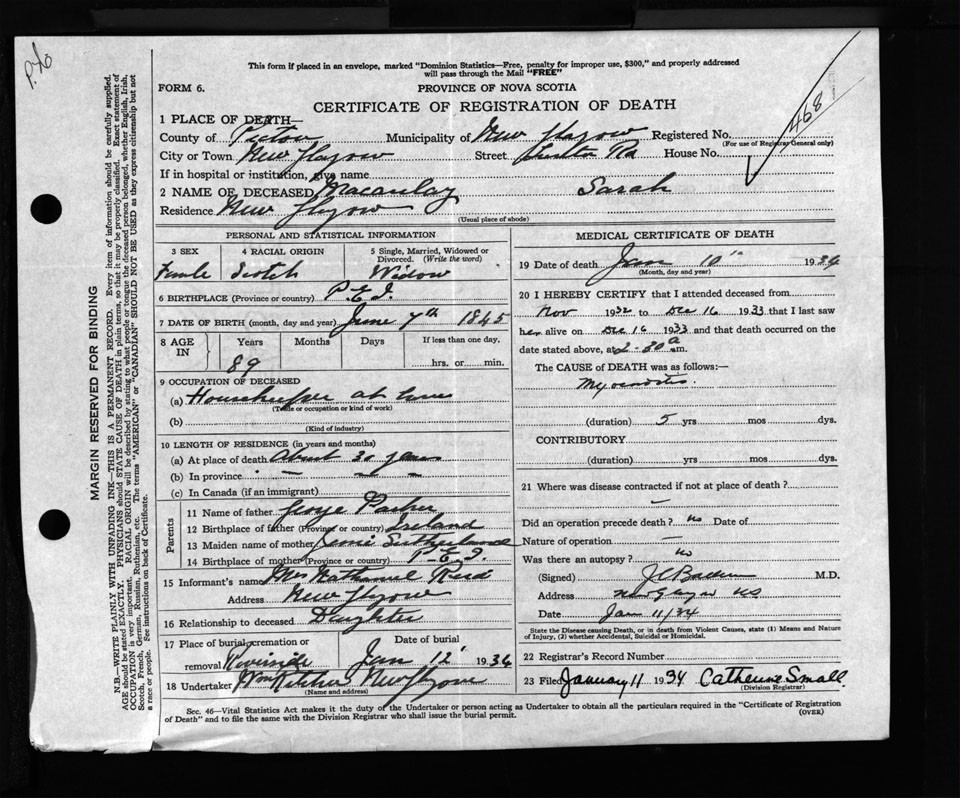 P.20
This form if placed in an envelope, marked "Dominion Statistics—Free, penalty for improper use, $300," and properly addressed
will pass through the Mail "FREE"
FORM 6.
PROVINCE OF NOVA SCOTIA
CERTIFICATE OF REGISTRATION OF DEATH
468
1 PLACE OF DEATH—
County of Pictou Municipality of New Glasgow Registered No.
(For use of Registrar General only)
City or Town New Glasgow Street Rd House No.
If in hospital or institution, give name
2 NAME OF DECEASED Macaulay Sarah
Residence New Glasgow
(Usual place of abode)
PERSONAL AND STATISTICAL INFORMATION
3 SEX 4 RACIAL ORIGIN 5 Single, Married, Widowed or Divorced. (Write the word)
Female Scotch Widow
6 BIRTHPLACE (Province or country) P.E.I.
7 DATE OF BIRTH (month, day and year) June 7th 1845
8 AGE IN Years Months Days If less than one day,
89 hrs. or min.
9 OCCUPATION OF DECEASED
(a) Housekeeper at home
(Trade or occupation or kind of work)
(b)
(Kind of industry)
10 LENGTH OF RESIDENCE (in years and months)
(a) At place of death About 30 years
(b) In province
(c) In Canada (if an immigrant)
Parents
11 Name of father George
12 Birthplace of father (Province or country) Ireland
13 Maiden name of mother Sutherland
14 Birthplace of mother (Province or country) P.E.I.
15 Informant's name Mrs Nathaniel Reid
Address New Glasgow
16 Relationship to deceased Daughter
17 Place of burial, cremation or removal Riverside Date of burial Jan 12 1934
18 Undertaker Wm New Glasgow
(Name and address)
MEDICAL CERTIFICATE OF DEATH
19 Date of death Jan 10th 1934
(Month, day and year)
20 I HEREBY CERTIFY that I attended deceased from
Nov 1932 to Dec 16 1933 that I last saw
her alive on Dec 16 1933 and that death occurred on
date stated above, at 2-30 a m.
The CAUSE of DEATH was as follows:—
Myocarditis
(duration) 5 yrs mos dys.
CONTRIBUTORY
(duration) yrs mos dys.
21 Where was disease contracted if not at place of death?
Did an operation precede death? no Date of
Nature of operation
Was there an autopsy? no
(Signed) M.D.
Address New Glasgow NS
Date Jan 11/34
State the Disease causing Death, or in death from Violent Causes, state (1) Means and Nature
of Injury, (2) whether Accidental, Suicidal or Homicidal.
22 Registrar's Record Number
23 Filed January 11 1934 Catherine Small
(Division Registrar)
Sec. 46—Vital Statistics Act makes it the duty of the Undertaker or person acting as Undertaker to obtain all the particulars required in the "Certificate of Registration
of Death" and to file the same with the Division Registrar who shall issue the burial permit.
(OVER)
MARGIN RESERVED FOR BINDING
N.B.—WRITE PLAINLY WITH UNFADING INK—THIS IS A PERMANENT RECORD. Every item of information should be carefully supplied.
AGE should be stated EXACTLY. PHYSICIANS should STATE CAUSE OF DEATH in plain terms, so that it may be properly classified. Exact statement of
OCCUPATION is very important. RACIAL ORIGIN will be described by stating to what people or tongue the deceased person belonged, whether English, Irish,
Scotch, French, German, Russian, Ruthenian, etc. The terms "AMERICAN" or "CANADIAN" SHOULD NOT BE USED as they express citizenship but not
a race or people. See instructions on back of Certificate.